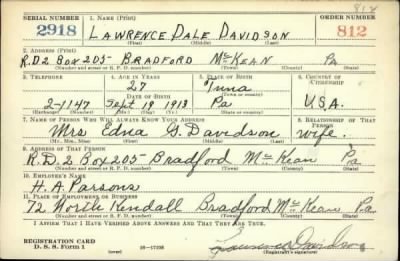 814
SERIAL NUMBER 1. NAME (Print) ORDER NUMBER
2918 LAWRENCE DALE DAVIDSON 812
(First) (Middle) (Last)
2. ADDRESS (Print)
R.D.2 BOX 205- BRADFORD McKEAN Pa
(Number and street or R. F. D. number) (Town) (County) (State)
3. TELEPHONE 4. AGE IN YEARS 5. PLACE OF BIRTH 6. COUNTRY OF CITIZENSHIP
27 Tuna
DATE OF BIRTH (Town or county)
2-1147 Sept 19 1913 Pa U.S.A.
(Exchange) (Number) (Mo.) (Day) (Yr.) (State or country)
7. NAME OF PERSON WHO WILL ALWAYS KNOW YOUR ADDRESS 8. RELATIONSHIP OF THAT PERSON
Mrs Edna G. Davidson wife.
(Mr., Mrs., Miss) (First) (Middle) (Last)
9. ADDRESS OF THAT PERSON
R.D.2 Box 205- Bradford Mc Kean Pa
(Number and street or R. F. D. number) (Town) (County) (State)
10. EMPLOYER'S NAME
H. A. Parsons
11. PLACE OF EMPLOYMENT OR BUSINESS
72 North Kendall Bradford Mc Kean Pa.
(Number and street or R. F. D. number) (Town) (County) (State)
I AFFIRM THAT I HAVE VERIFIED ABOVE ANSWERS AND THAT THEY ARE TRUE.
REGISTRATION CARD
D. S. S. Form 1 Lawrence Davidson
(Registrant's signature)